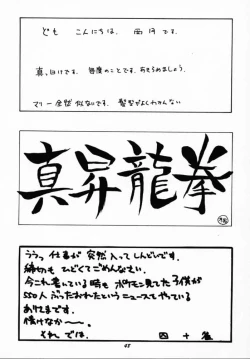 ども こんにちは、西河です。
真、日けです。毎度のことです。あきらめましょう。
マリー全然似ないです。髪型がよくわかんない
真昇龍拳
ううっ仕事が突然入ってしんどいです。
締切もひどくてごめんなさい。
今これ書いている時も ポケモン見てた子供が
550人 ぶったおれたというニュースしてやっている
ありさまです。
情けなか〜〜。
それでは。 四十雀
45